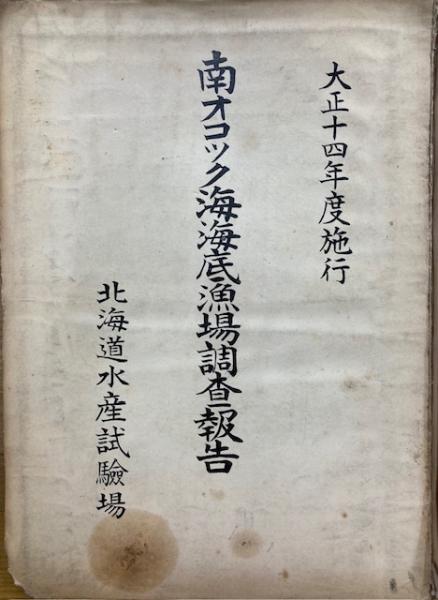 大正十四年度施行
南オコック海海底漁場調査報告
北海道水産試験場